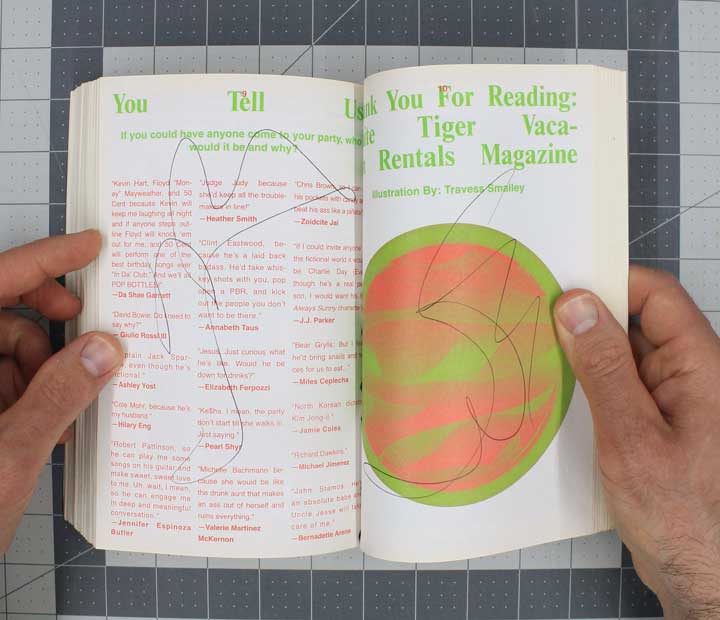 9
You Tell Us
If you could have anyone come to your party, who
would it be and why?
"Kevin Hart, Floyd "Mon-
ey" Mayweather, and 50
Cent because Kevin will
keep me laughing all night
and if anyone steps out-
line Floyd will knock 'em
out for me, and 50 Cent
will perform one of the
best birthday songs ever:
"In Da' Club." And we'll all
POP BOTTLES!"
—Da Shae Garnett
"David Bowie. Do I need to
say why?"
—Giulio Rossi III
plain Jack Spar-
even though he's
fictional."
—Ashley Yost
"Cole Mohr, because he's
my husband."
—Hilary Eng
"Robert Pattinson, so
he can play me some
songs on his guitar and
make sweet, sweet love
to me. Uh, wait, I mean,
so he can engage me
in deep and meaningful
conversation."
—Jennifer Espinoza
Butler
"Judge Judy because
she'd keep all the trouble-
makers in line!"
—Heather Smith
"Clint Eastwood, be-
cause he's a laid back
badass. He'd take whis-
key shots with you, pop
open a PBR, and kick
out the people you don't
want to be there."
—Annabeth Taus
"Jesus. Just curious what
he's like. Would he be
down for drinks?"
—Elizabeth Ferpozzi
"Ke$ha. I mean, the party
don't start till she walks in.
Just saying."
—Pearl Shyr
"Michelle Bachmann be-
cause she would be like
the drunk aunt that makes
an ass out of herself and
ruins everything."
—Valerie Martinez
McKernon
"Chris Brown, so I can
his pockets with candy a
beat his ass like a piñata
—Zoidcite Jai
"If I could invite anyone
the fictional world it wou
be Charlie Day (Ev
though he's a real pe
son, I would want his It
Always Sunny characte
—J.J. Parker
"Bear Grylls. But I
he'd bring snails and
ces for us to eat..."
—Miles Ceplecha
"North Korean dicta
Kim Jong-il."
—Jamie Colea
"Richard Dawkins."
—Michael Jimenez
"John Stamos. He's
an absolute babe an
Uncle Jesse will tak
care of me."
—Bernadette Arena
10
nk You For Reading:
ite Tiger Vaca-
Rentals Magazine
Illustration By: Travess Smalley